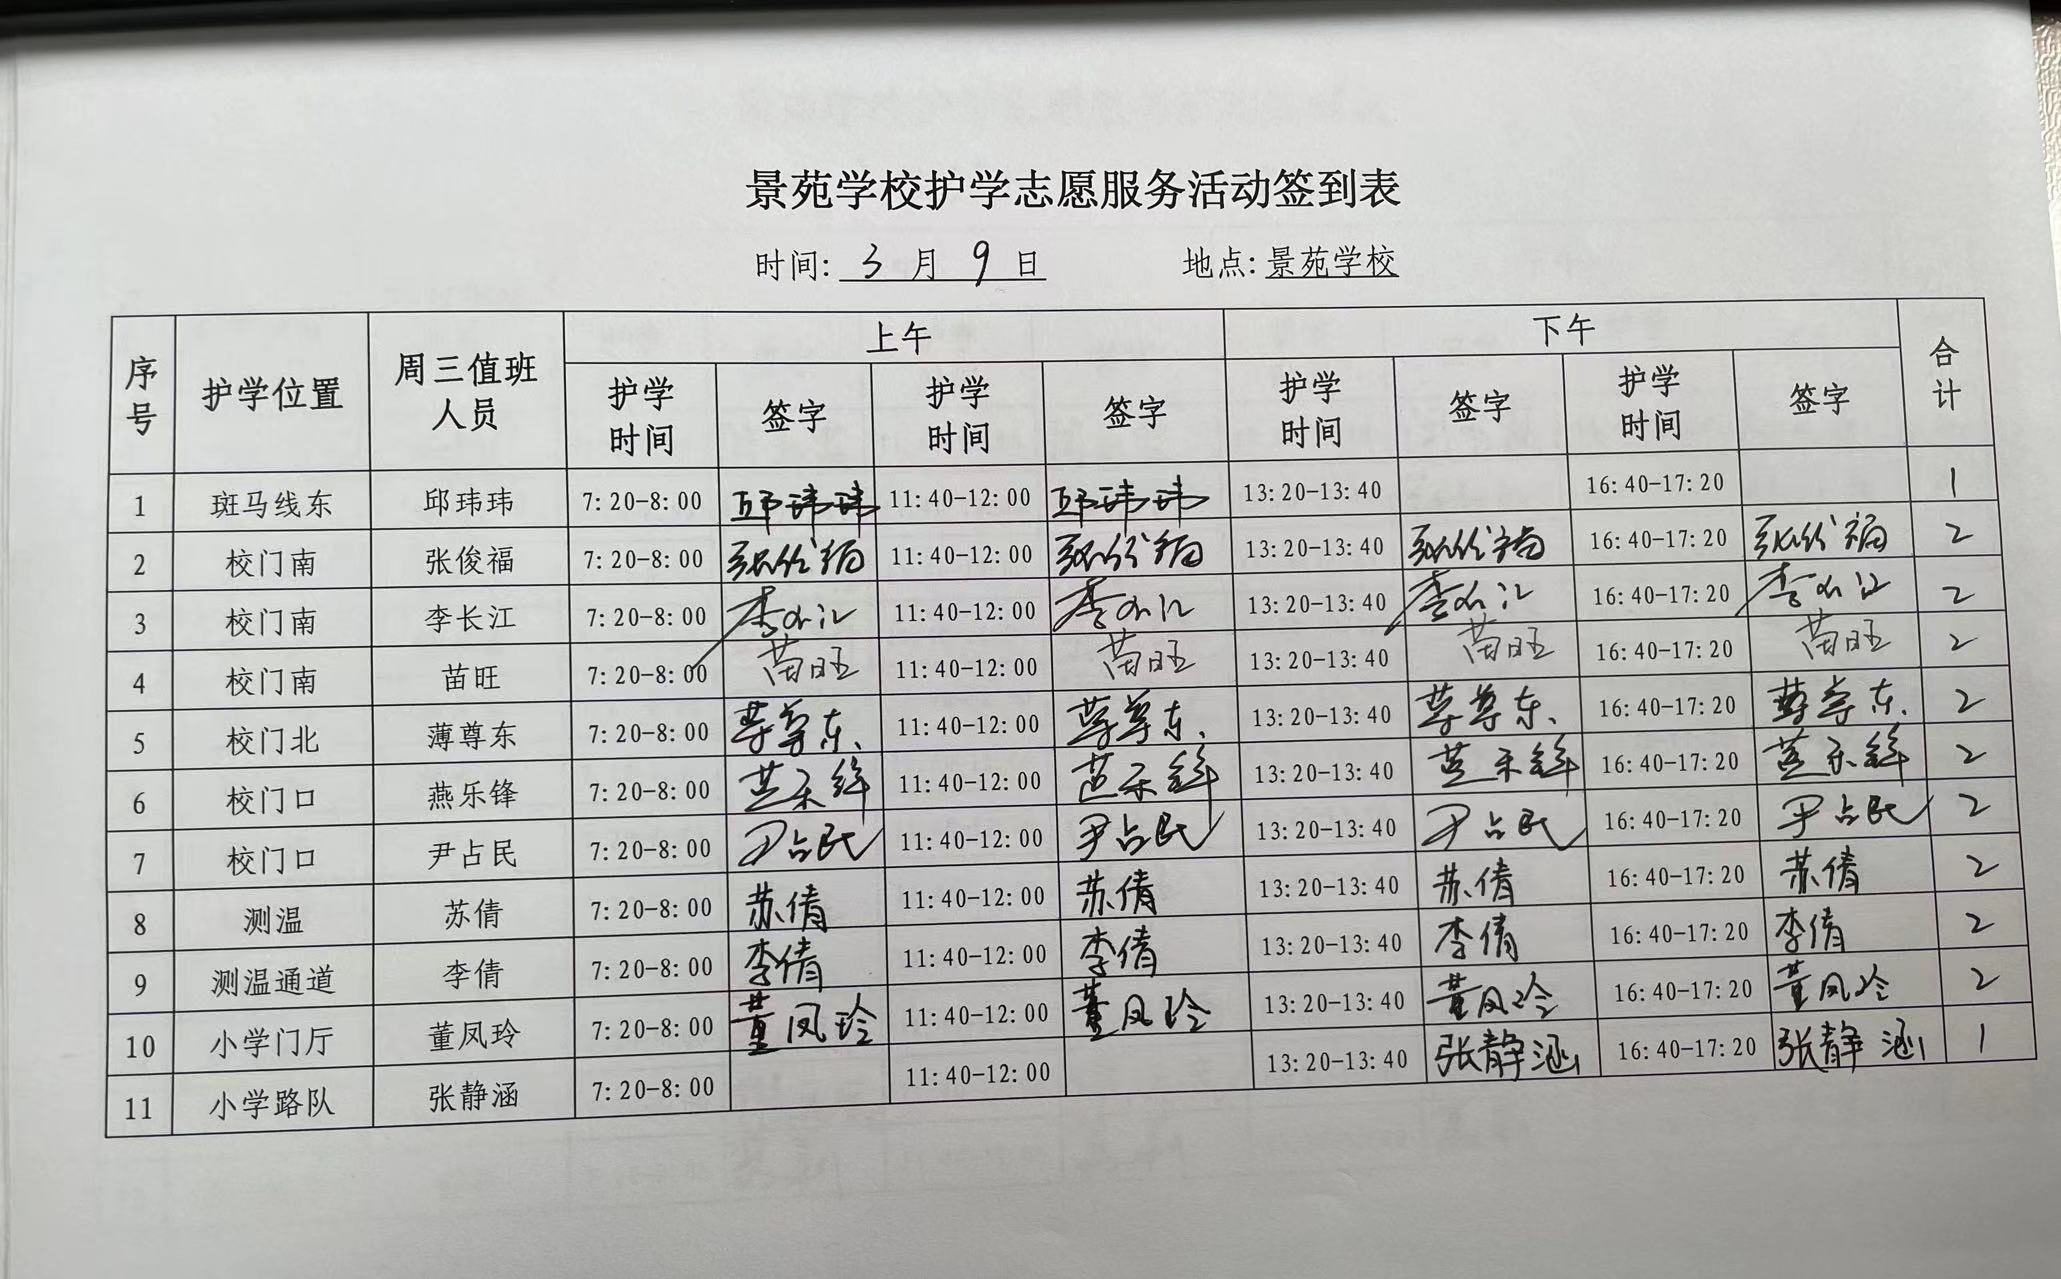 景苑学校护学志愿服务活动签到表
时间: 3 月 9 日 地点: 景苑学校
序号 护学位置 周三值班人员 上午 下午 合计
护学时间 签字 护学时间 签字 护学时间 签字 护学时间 签字
1 斑马线东 邱玮玮 7:20-8:00 邱玮玮 11:40-12:00 邱玮玮 13:20-13:40 16:40-17:20 1
2 校门南 张俊福 7:20-8:00 张俊福 11:40-12:00 张俊福 13:20-13:40 张俊福 16:40-17:20 张俊福 2
3 校门南 李长江 7:20-8:00 李长江 11:40-12:00 李长江 13:20-13:40 李长江 16:40-17:20 李长江 2
4 校门南 苗旺 7:20-8:00 苗旺 11:40-12:00 苗旺 13:20-13:40 苗旺 16:40-17:20 苗旺 2
5 校门北 薄尊东 7:20-8:00 薄尊东 11:40-12:00 薄尊东 13:20-13:40 薄尊东 16:40-17:20 薄尊东 2
6 校门口 燕乐锋 7:20-8:00 燕乐锋 11:40-12:00 燕乐锋 13:20-13:40 燕乐锋 16:40-17:20 燕乐锋 2
7 校门口 尹占民 7:20-8:00 尹占民 11:40-12:00 尹占民 13:20-13:40 尹占民 16:40-17:20 尹占民 2
8 测温 苏倩 7:20-8:00 苏倩 11:40-12:00 苏倩 13:20-13:40 苏倩 16:40-17:20 苏倩 2
9 测温通道 李倩 7:20-8:00 李倩 11:40-12:00 李倩 13:20-13:40 李倩 16:40-17:20 李倩 2
10 小学门厅 董凤玲 7:20-8:00 董凤玲 11:40-12:00 董凤玲 13:20-13:40 董凤玲 16:40-17:20 董凤玲 2
11 小学路队 张静涵 7:20-8:00 11:40-12:00 13:20-13:40 张静涵 16:40-17:20 张静涵 1